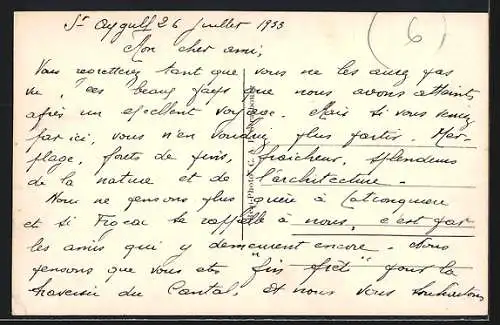 St Aygulf 26 Juillet 1933
Mon cher ami,
Vous regretterez tant que vous ne les aurez pas
vu, ces beaux pays que nous avons atteints
après un excellent voyage. Mais si vous venez
par ici, vous n'en voudrez plus partir. Mer-
plage, forêts de pins, fraîcheur, splendeurs
de la nature et de l'architecture.
Nous ne pensons plus guère à
et si se rappelle à nous, c'est par
les amis qui y demeurent encore. Nous
pensons que vous êtes "fin prêt" pour la
traversée du Cantal, et nous vous souhaitons
(6)